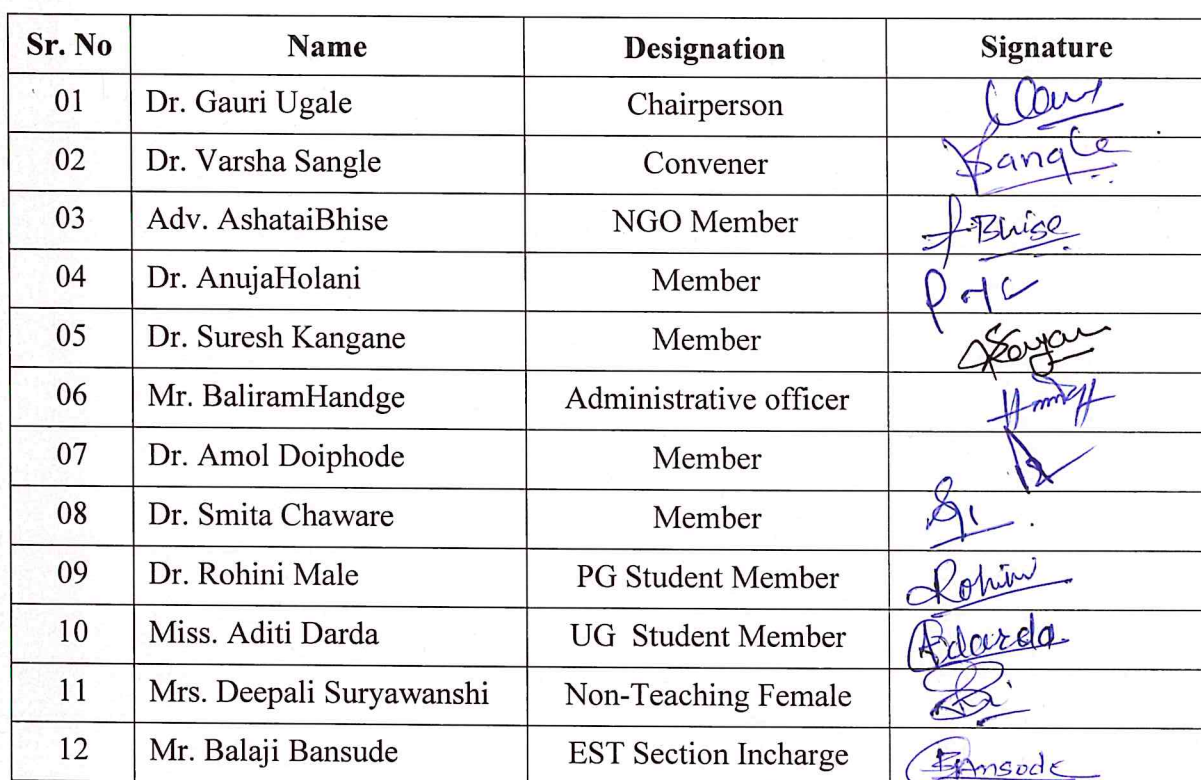 Sr. No Name Designation Signature
01 Dr. Gauri Ugale Chairperson
02 Dr. Varsha Sangle Convener Sangle
03 Adv. AshataiBhise NGO Member Bhise
04 Dr. AnujaHolani Member
05 Dr. Suresh Kangane Member
06 Mr. BaliramHandge Administrative officer
07 Dr. Amol Doiphode Member
08 Dr. Smita Chaware Member
09 Dr. Rohini Male PG Student Member Rohini
10 Miss. Aditi Darda UG Student Member Adarda
11 Mrs. Deepali Suryawanshi Non-Teaching Female
12 Mr. Balaji Bansude EST Section Incharge Bansode